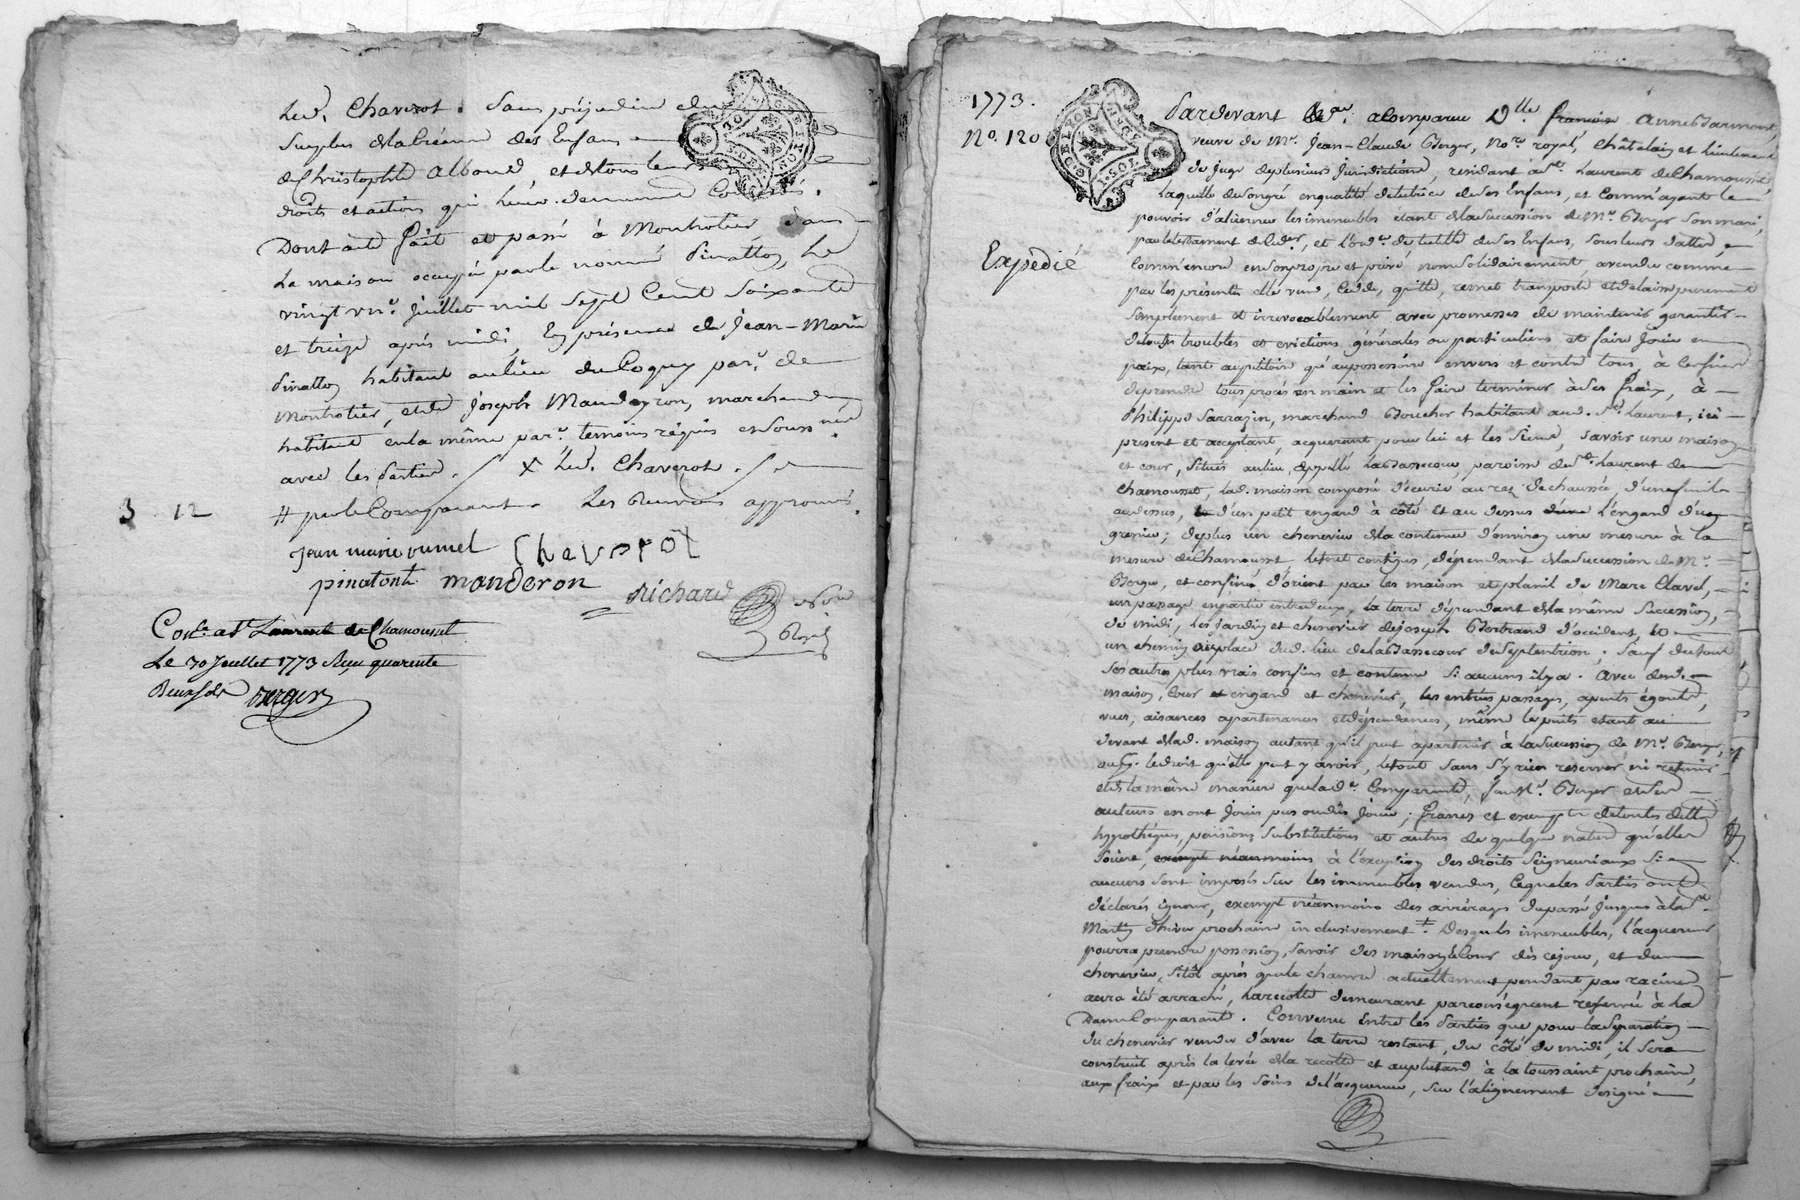 Led. Chaverot. Sans préjudice du
Surplus de la Créance des Enfans
de Christophle Alboud, et de tous les
droits et actions qui leur demeurent
Dont acte fait et passé à Montrotier dans
La maison occupée par le nommé Pinatton, Le
vingt un.e Juillet mil Sept Cent Soixante
et treize après midi, En présence de Jean-Marie
Pinatton habitant au lieu du Coquy par.e de
Montrotier, et de Joseph Mandeyron, marchand
habitant en la même par.e temoins réquis et Soussigné
avec les Parties. X Led. Chaverot.
# par le Comparant. Les Renvois approuvés.
3 12
Jean marie
Chaverot
pinatont manderon
Richard
Nore Royal
Con.lé a St Laurent de Chamousset
Le 30 Juillet 1773 Reçu quarente
Deux sols Berger
1773.
N.o 120
Expédié
Pardevant a Comparue D.lle francoise Anne
veuve de M.r Jean-Claude Berger, No.re royal, Châtelain et Lieutenant
de Juge de plusieurs Jurisdictions, résidant à St. Laurent de Chamousset,
laquelle de son gré en qualité de tutrice de ses Enfans, et Comm'ayant le
pouvoir d'aliener les immeubles étant de la Succession de M.r Berger Son mari,
par le testament de et de tutelle de Ses Enfans, Sous leurs dattes,
Comm'encore en Son propre et privé nom Solidairement, a vendu comme
par les présentes elle vend, Cedde, quitte, remet transporte et delaisse purement
Simplement et irrevocablement avec promesses de maintenir garantir
de tous troubles et evictions générales ou particuliers et faire Jouir en
paix, tant au petitoire qu'au possessoire envers et contre tous, à
de prendre tous procès en main et les faire terminer à Ses fraix, à
Philippe Sarrazin, marchand Boucher habitant aud. St. Laurent, ici
present et acceptant, acquerant pour lui et les Siens, Savoir une maison
et cour, Situés au lieu appellé la Bassecour, paroisse de St. Laurent de
Chamousset, lad. maison composée d'écurie au rez de chaussée,
au dessus, d'un petit engard à côté et au dessus l'engard d'un
grenier; de plus un chenevier de la contenue d'environ une mesure à la
mesure de Chamousset, le tout contigus, dépendant de la Succession de M.r
Berger, et confiné d'orient par les maison et plani de Marc Clavel,
un passage en partie entre deux, la terre dépendant de la même Succession,
de midi, les Jardin et chenevier de Joseph Bertrand d'occident,
un chemin du lieu de la Bassecour de Septentrion; Sauf du tout
Ses autres plus vrais confins et contenue Si aucuns il y a. Avec desd.
maison, Cour et engard et chenevier, les entrées passages,
vues, aisances apartenances et dépendances, même le puits étant au
devant de lad. maison autant qu'il peut apartenir à la Succession de M.r Berger,
le droit qu'elle peut y avoir, le tout Sans S'y rien reserver ni retenir
et de la même maniere que lad.e Comparante, M.r Berger et Ses
auteurs en ont Joui pu ou dû Jouir; francs et exempts de toutes dettes
hypothèques, pensions, Substitutions et autres de quelque nature qu'elles
Soient, à l'exception des droits Seigneuriaux Si
aucuns Sont imposés Sur les immeubles vendus, Lesquels Parties ont
déclarés ignorer, exempt néanmoins des arrérages du passé Jusques à la St.
Martin d'hiver prochaine inclusivement #. Desquels immeubles, l'acquereur
pourra prendre possession, Savoir des maison & Cour dès ce jour, et du
chenevier, Sitôt après que le chanvre actuellement pendant par racine
aura été arraché, la recolte demeurant par conséquent reservée à la
Dame Comparante. Convenu Entre les Parties que pour la Séparation
du chenevier vendu d'avec la terre restant, du côté de midi, il Sera
construit après la levée de la recolte et au plus tard à la toussaint prochaine,
aux fraix et par les Soins de l'acquereur, Sur l'alignement designé